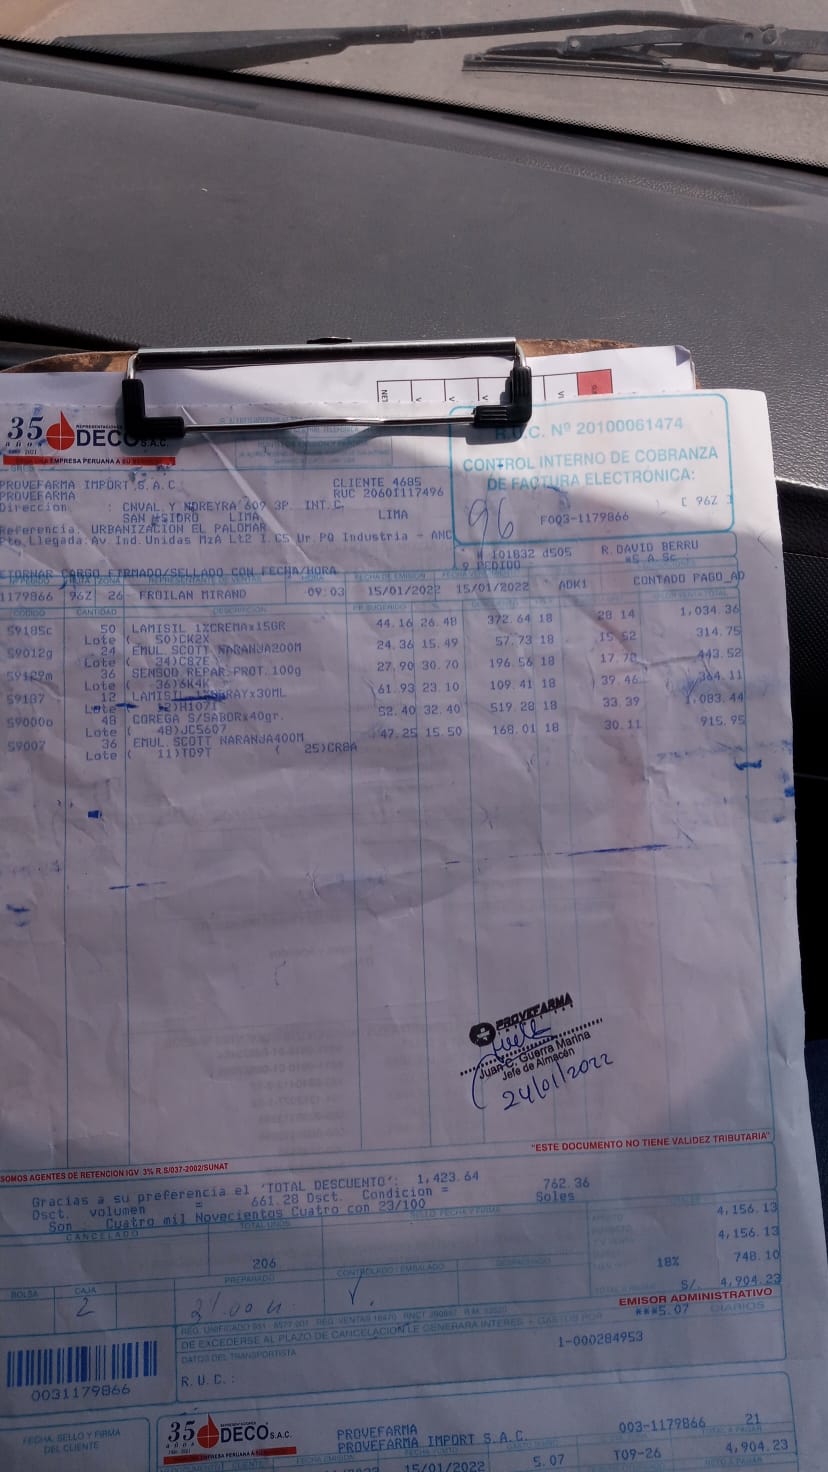 35 DECO S.A.C.
AÑOS
UNA EMPRESA PERUANA A SU
R.U.C. Nº 20100061474
CONTROL INTERNO DE COBRANZA
DE FACTURA ELECTRÓNICA:
96 F003-1179866 [ 96Z ]
PROVEFARMA IMPORT S.A.C. CLIENTE 4685
PROVEFARMA RUC 20601117496
Direccion : CNVAL.Y NOREYRA 609 3P. INT.C
SAN ISIDRO LIMA LIMA
Referencia, URBANIZACION EL PALOMAR
Pto Llegada:Av.Ind.Unidas MzA Lt2 I.C5 Ur.PQ Industria - ANC
# 101832 d505 R.DAVID BERRU
RETORNAR CARGO FIRMADO/SELLADO CON FECHA/HORA 9 PEDIDO *S A.Sc
1179866 96Z 26 FROILAN MIRAND -09:03 15/01/2022 15/01/2022 ADK1 CONTADO PAGO_AD
CODIGO CANTIDAD DESCRIPCION
59185c 50 LAMISIL 1%CREMAx15GR 44.16 26.48 372.64 18 28.14 1,034.36
Lote ( 50)CK2X
59012g 24 EMUL.SCOTT NARANJA200M 24.36 15.49 57.73 18 15.52 314.75
Lote ( 24)C87E
59129m 36 SENSOD REPAR.PROT.100g 27.90 30.70 196.56 18 17.78 443.52
Lote ( 36)6K4K
59187 12 LAMISIL SPRAYx30ML 61.93 23.10 109.41 18 39.46 364.11
Lote ( 12)H107
59000o 48 COREGA S/SABORx40gr. 52.40 32.40 519.28 18 33.39 1,083.44
Lote ( 48)JC5607
59007 36 EMUL.SCOTT NARANJA400M 47.25 15.50 168.01 18 30.11 915.95
Lote ( 11)TD9T ( 25)CR8A
PROVEFARMA
Juan C. Guerra Marina
Jefe de Almacén
24/01/2022
"ESTE DOCUMENTO NO TIENE VALIDEZ TRIBUTARIA"
SOMOS AGENTES DE RETENCION IGV 3% R.S/037-2002/SUNAT
Gracias a su preferencia el 'TOTAL DESCUENTO': 1,423.64
Dsct. volumen = 661.28 Dsct. Condicion = 762.36
Son : Cuatro mil Novecientos Cuatro con 23/100 Soles
CANCELADO TOTAL UNDS
206
4,156.13
4,156.13
18% 748.10
S/. 4,904.23
PREPARADO CONTROLADO / EMBALADO
BOLSA CAJA
2
EMISOR ADMINISTRATIVO
***5.07 DIARIOS
DE EXCEDERSE AL PLAZO DE CANCELACION LE GENERARA INTERES + GASTOS POR
DATOS DEL TRANSPORTISTA
1-000284953
R.U.C.:
0031179866
FECHA, SELLO Y FIRMA
DEL CLIENTE
35 DECO S.A.C.
AÑOS
PROVEFARMA
PROVEFARMA IMPORT S.A.C.
003-1179866 21
15/01/2022 5.07 T09-26 4,904.23